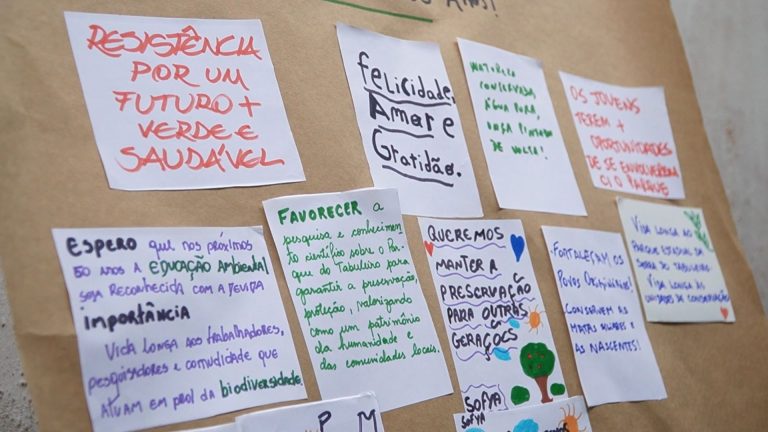 RESISTÊNCIA
POR UM
FUTURO +
VERDE E
SAUDÁVEL
felicidade,
Amor e
Gratidão.
NATUREZA
CONSERVADA,
ÁGUA PURA,
ONÇA PINTADA
DE VOLTA!
OS JOVENS
TEREM +
OPORTUNIDADES
DE SE ENVOLVEREM
C/ O PARQUE
ESPERO que nos próximos
50 anos a EDUCAÇÃO AMBIENTAL
SEJA RECONHECIDA COM A DEVIDA
IMPORTÂNCIA
VIDA LONGA AOS trabalhadores,
pesquisadores e comunidade que
ATUAM EM PROL DA biodiversidade.
FAVORECER a
pesquisa e conhecimen
to científico sobre o Par-
que do Tabuleiro para
garantir a preservação,
proteção, valorizando
como um patrimônio
da humanidade e
das comunidades locais.
QUEREMOS
MANTER A
PRESERVAÇÃO
PARA OUTRAS
GERAÇÕES
SOFYA
FORTALEÇAM OS
POVOS ORIGINÁRIOS!
CONSERVEM AS
MATAS CILIARES E
AS NASCENTES!
VIDA LONGA AO
PARQUE ESTADUAL DA
SERRA DO TABULEIRO
VIDA LONGA ÀS
UNIDADES DE CONSERVAÇÃO
SOFYA